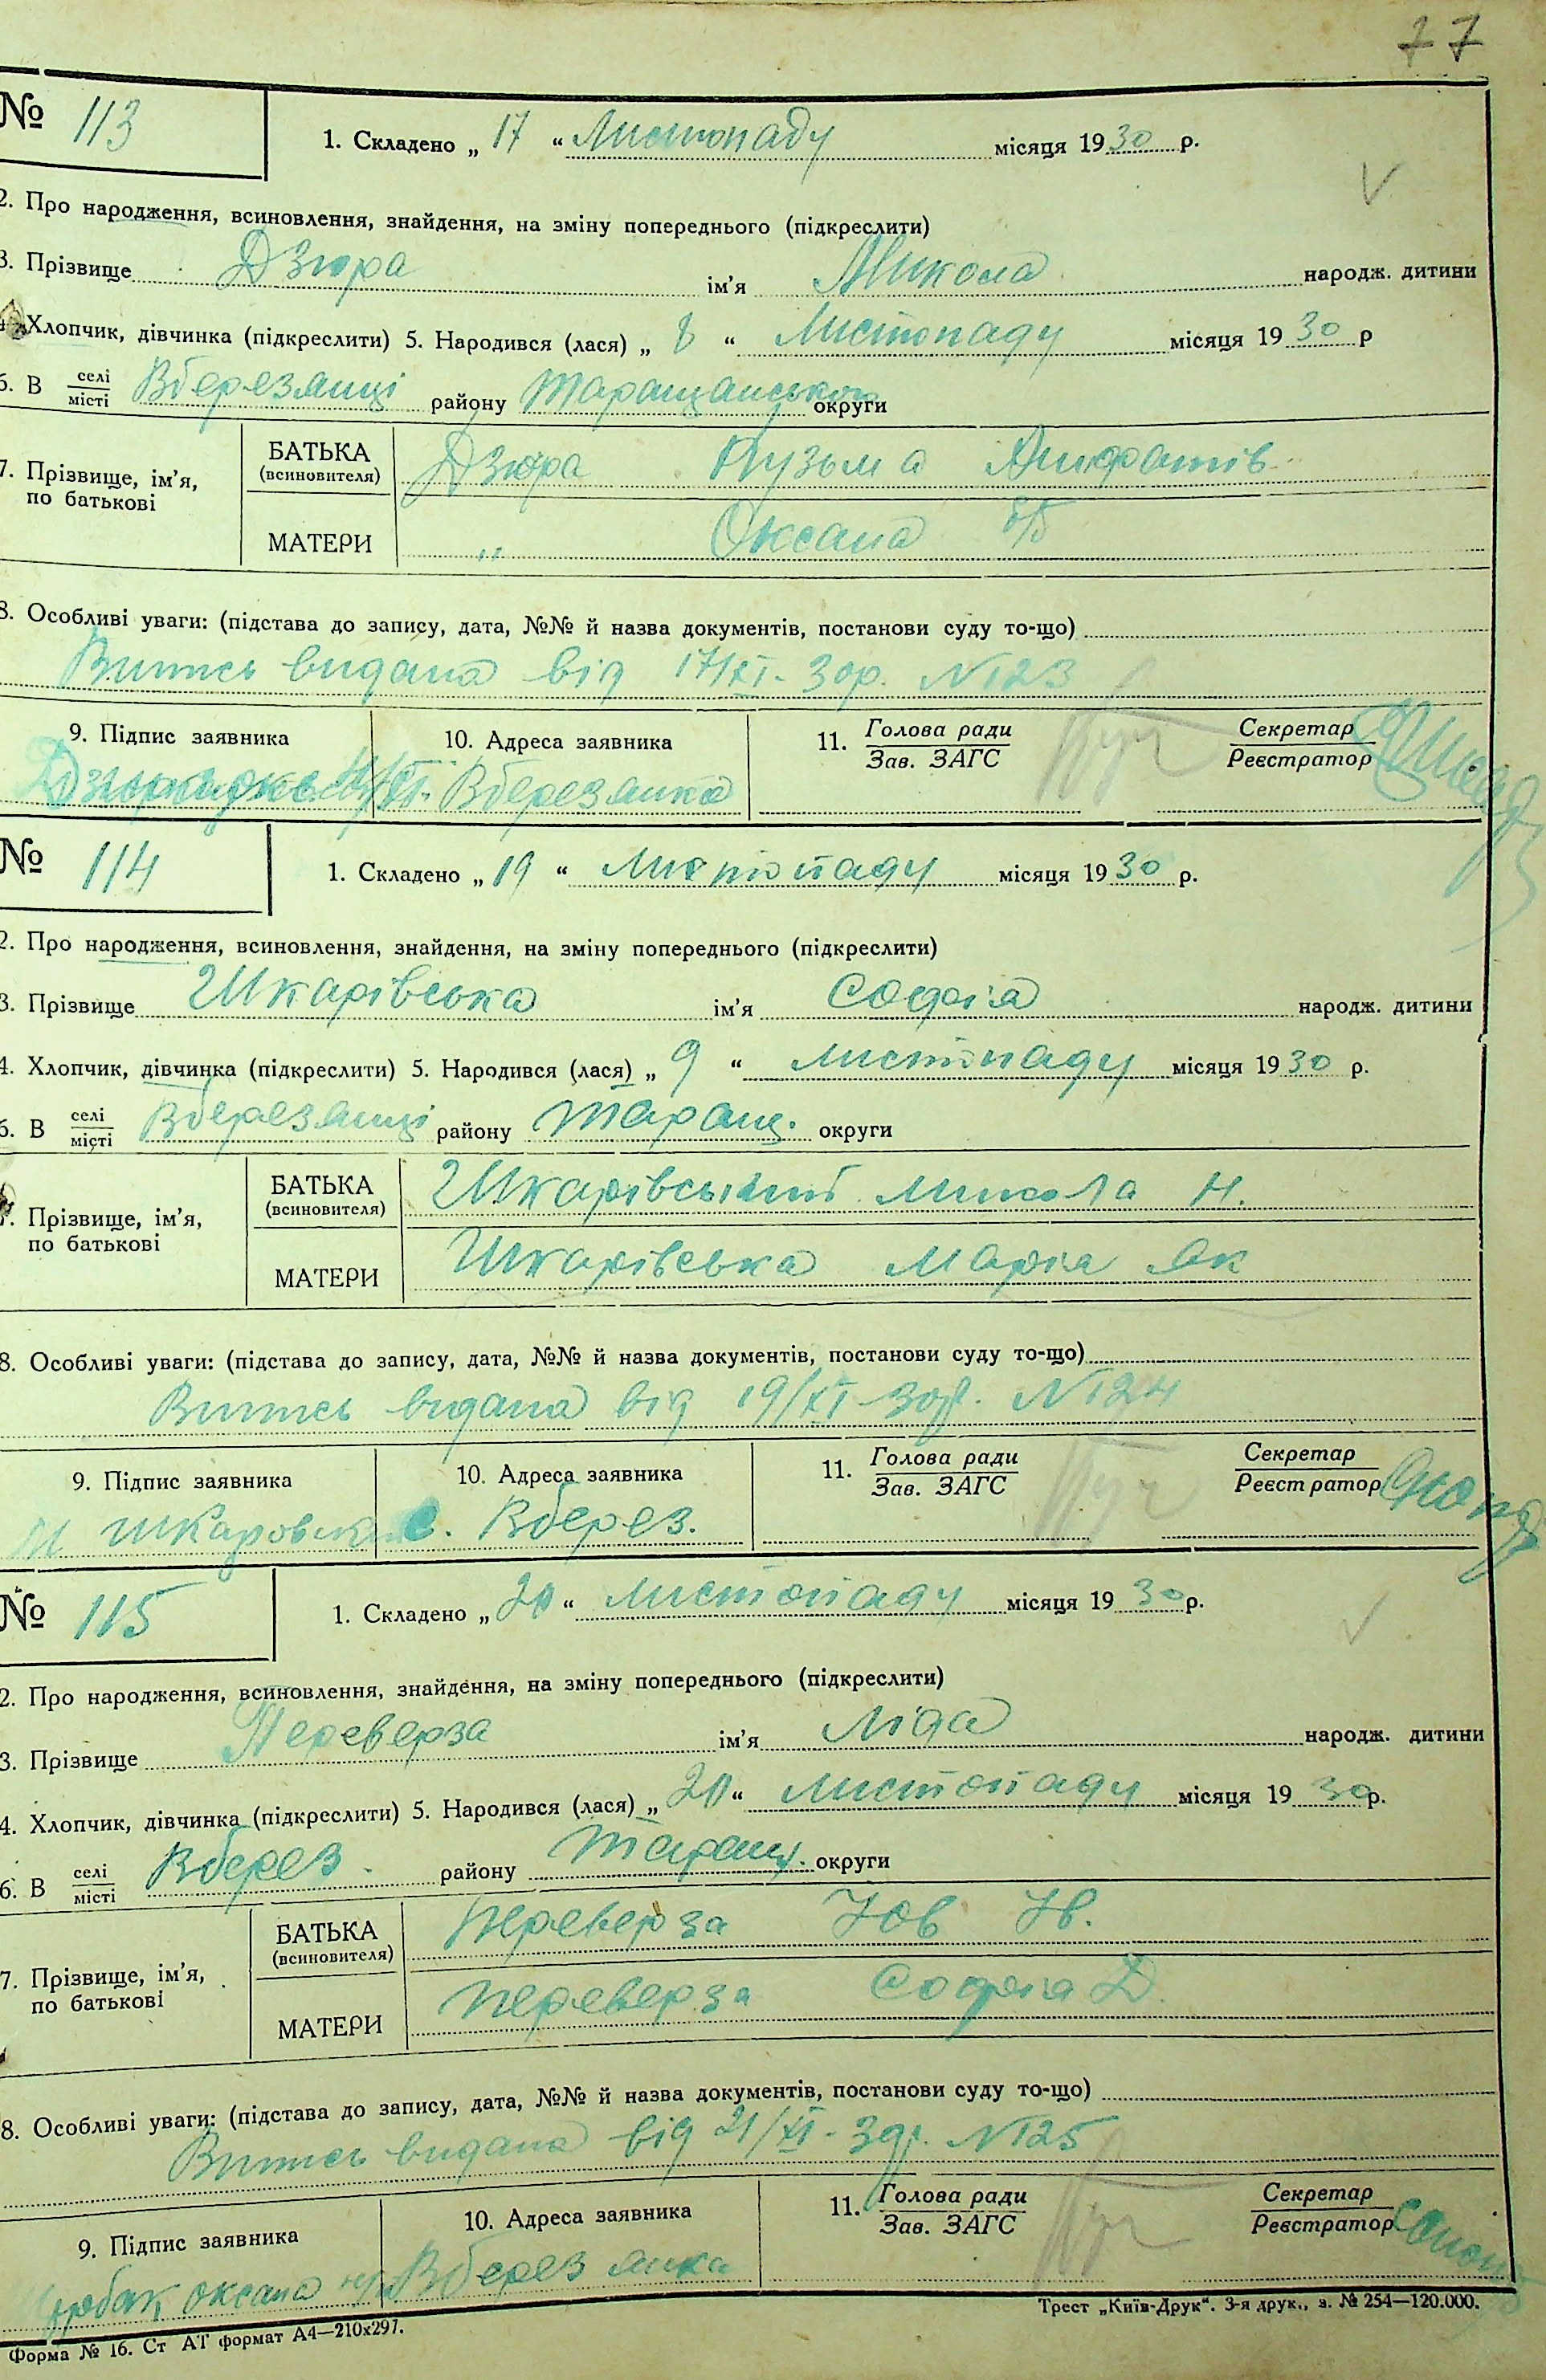 77
№ 113
1. Складено „ 17 “ Листопаду місяця 1930 р.
2. Про народження, всиновлення, знайдення, на зміну попереднього (підкреслити)
3. Прізвище Дзюра ім'я Микола народж. дитини
4. Хлопчик, дівчинка (підкреслити) 5. Народився (лася) „ 8 “ Листопаду місяця 1930 р
6. В селі місті Вберезянці району Таращанського округи
7. Прізвище, ім'я, по батькові
БАТЬКА (всиновителя) Дзюра Кузьма
МАТЕРИ „ Оксана
8. Особливі уваги: (підстава до запису, дата, №№ й назва документів, постанови суду то-що)
Випись видана від 17/XI-30р. N123
9. Підпис заявника 10. Адреса заявника 11. Голова ради Зав. ЗАГС Секретар Реєстратор
Вберезянка
№ 114
1. Складено „ 19 “ Листопаду місяця 1930 р.
2. Про народження, всиновлення, знайдення, на зміну попереднього (підкреслити)
3. Прізвище Шкарівська ім'я Софія народж. дитини
4. Хлопчик, дівчинка (підкреслити) 5. Народився (лася) „ 9 “ листопаду місяця 1930 р.
6. В селі місті Вберезянці району Таращ. округи
7. Прізвище, ім'я, по батькові
БАТЬКА (всиновителя) Шкарівський Микола Н.
МАТЕРИ Шкарівська Марія Як
8. Особливі уваги: (підстава до запису, дата, №№ й назва документів, постанови суду то-що)
Випись видана від 19/XI-30р. N124
9. Підпис заявника 10. Адреса заявника 11. Голова ради Зав. ЗАГС Секретар Реєстратор
с. Вберез.
№ 115
1. Складено „ “ листопаду місяця 1930р.
2. Про народження, всиновлення, знайдення, на зміну попереднього (підкреслити)
3. Прізвище Переверза ім'я Ліда народж. дитини
4. Хлопчик, дівчинка (підкреслити) 5. Народився (лася) „ “ листопаду місяця 1930р.
6. В селі місті Вберез. району Таращ. округи
7. Прізвище, ім'я, по батькові
БАТЬКА (всиновителя) Переверза Йов
МАТЕРИ Переверза Софія Д.
8. Особливі уваги: (підстава до запису, дата, №№ й назва документів, постанови суду то-що)
Випись видана від 21/XI-30р. N125
9. Підпис заявника 10. Адреса заявника 11. Голова ради Зав. ЗАГС Секретар Реєстратор
оксана Вберезянка
Форма № 16. Ст АТ формат А4—210х297.
Трест „Київ-Друк“. 3-я друк., з. № 254—120.000.